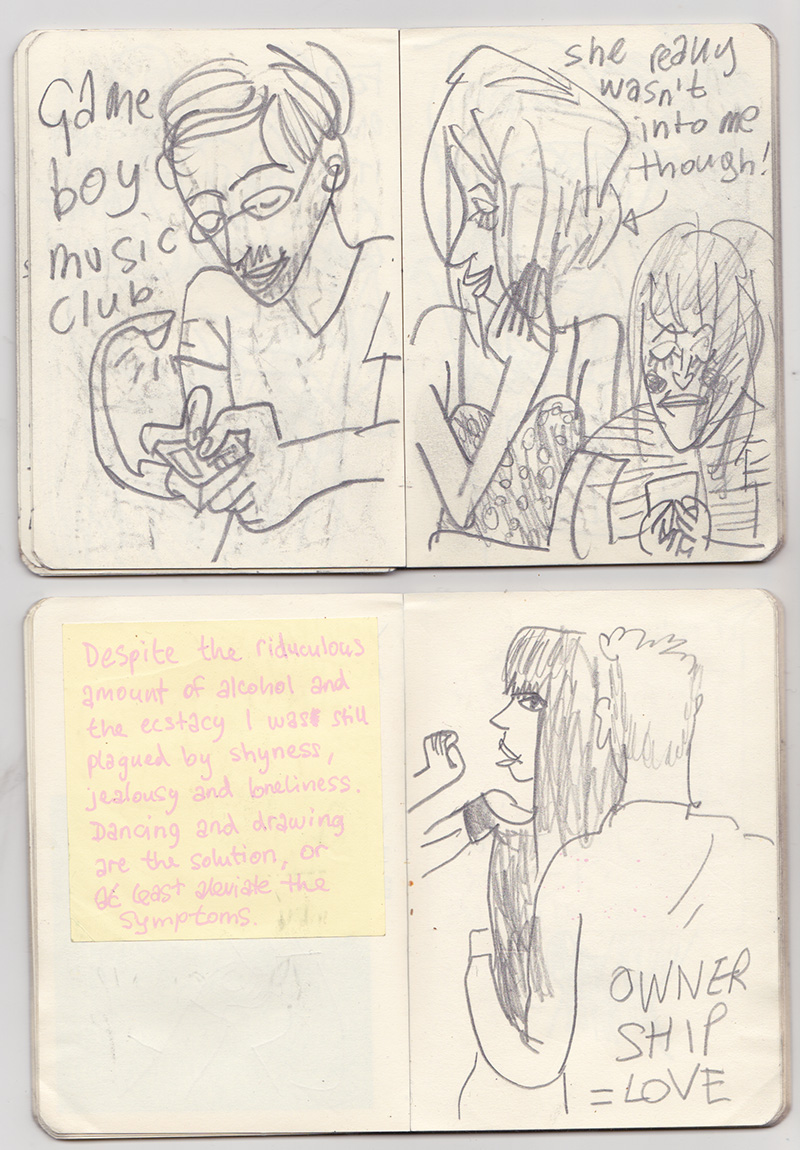 Game
boy
music
club
she really
wasn't
into me
though!
Despite the riduculous
amount of alcohol and
the ecstacy I was still
plagued by shyness,
jealousy and loneliness.
Dancing and drawing
are the solution, or
at least aleviate the
symptoms.
OWNER
SHIP
=LOVE